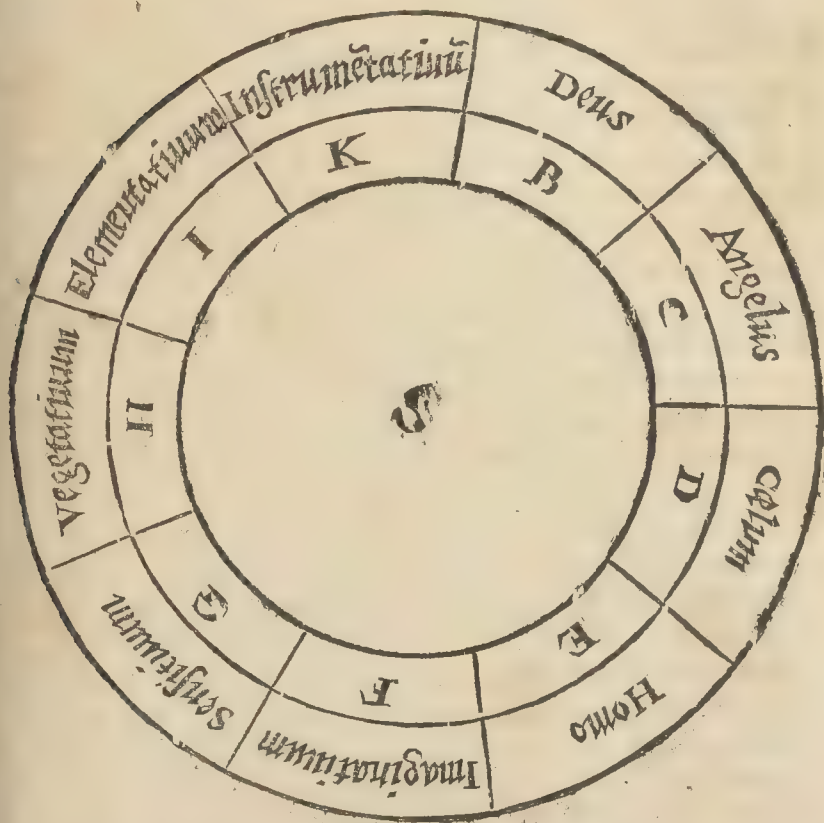 Deus
B
Angelus
C
Cęlum
D
Homo
E
Imaginatiuum
F
Sensitiuum
G
Vegetatiuum
H
Elementatiuum
I
Inſtrumẽtatiuũ
K
S